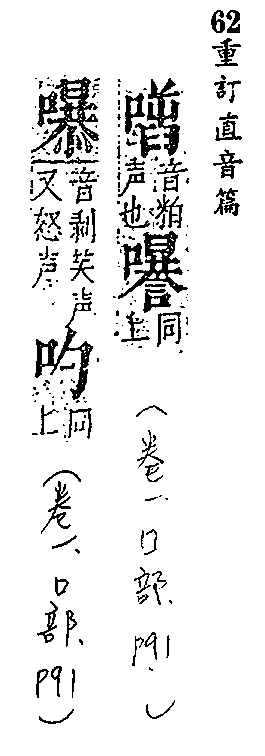 62重訂直音篇
音狛声也
同上
(卷一、口部、P91、)
嚗音剥笑声又怒声
同上
(卷一、口部、P91)